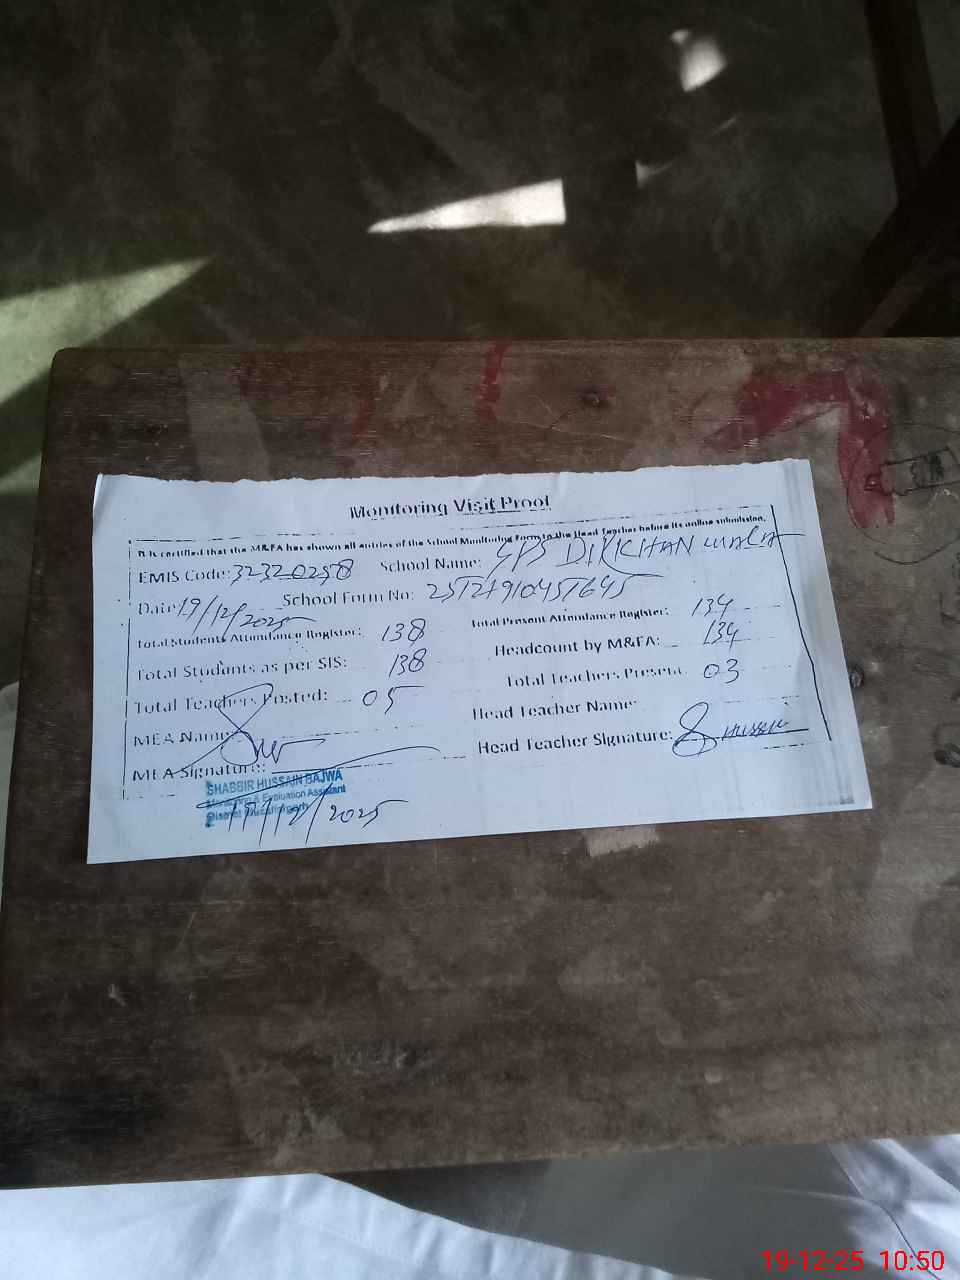 Monitoring Visit Proof
It is certified that the M&EA has shown all entries of the School Monitoring Form to the Head Teacher before its online submission.
EMIS Code: 32320258 School Name: GPS DIKKHAN WALA
Date: 19/12/2025 School Form No: 251219104517645
Total Students Attendance Register: 138 Total Present Attendance Register: 134
Total Students as per SIS: 138 Headcount by M&EA: 134
Total Teachers Posted: 05 Total Teachers Present: 03
MEA Name: Head Teacher Name:
MEA Signature: Head Teacher Signature:
SHABBIR HUSSAIN BAJWA
Monitoring & Evaluation Assistant
District Muzaffargarh
19/12/2025
19-12-25 10:50